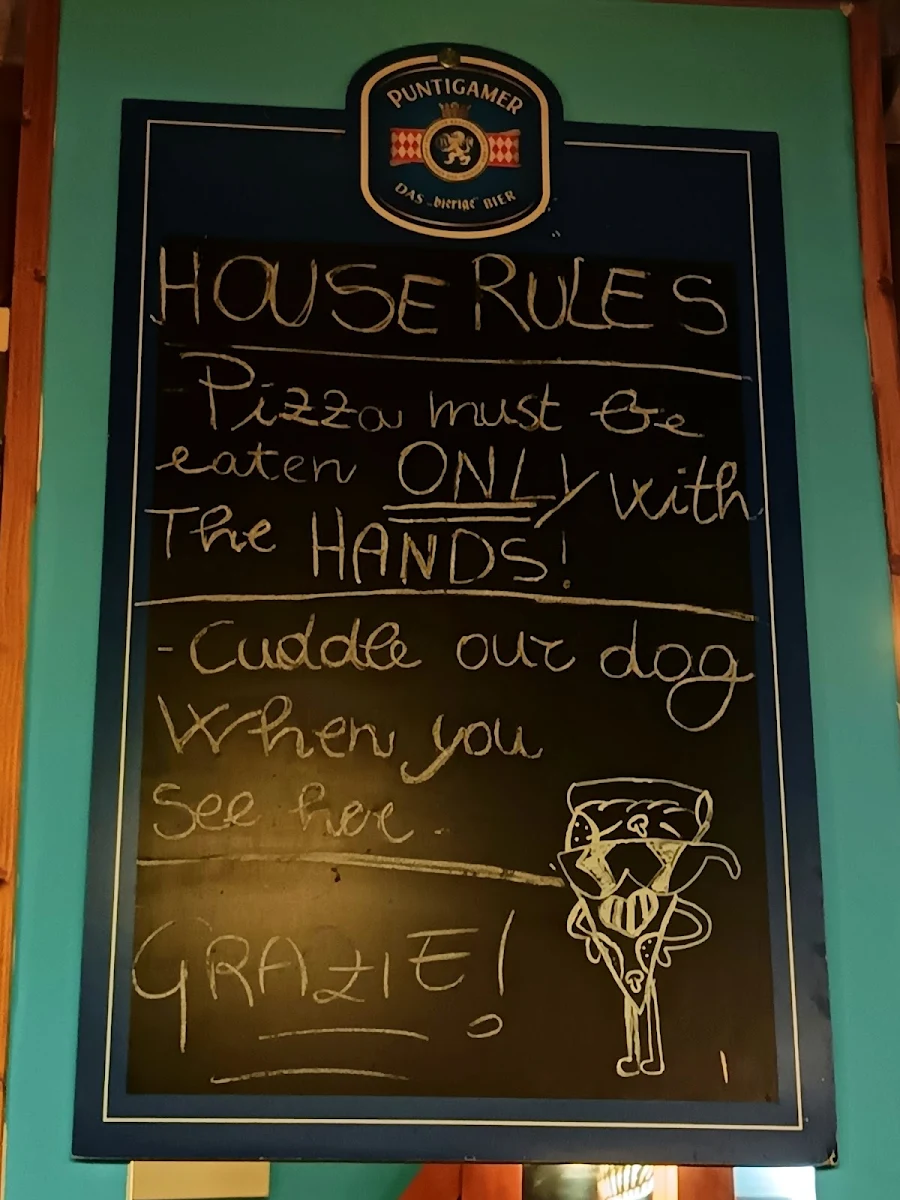 PUNTIGAMER
DAS „bierige" BIER
HOUSE RULES
Pizza must be
eaten ONLY with
The HANDS!
- Cuddle our dog
When you
see her.
GRAZIE!